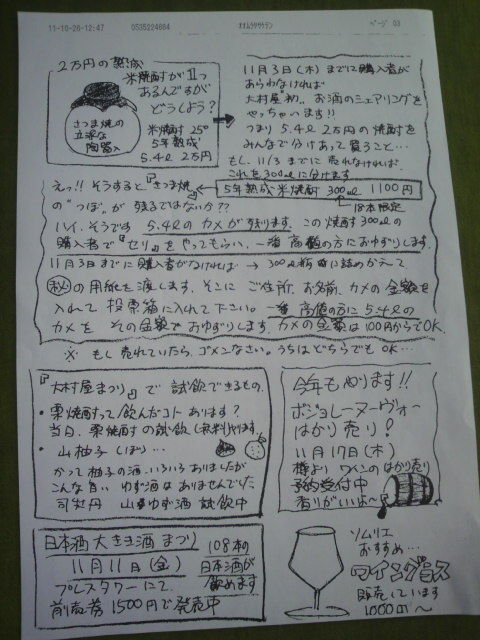 11-10-26-12:47 0535224664 オオムラヤサケテン ページ 03
2万円の熟成
米焼酎が1つ
あるんですが
どうしよう?
さつま焼の
立派な
陶器入
米焼酎 25°
5年熟成
5.4ℓ 2万円
11月3日(木)までに購入者が
あらわなければ
大村屋初。お酒のシェアリングを
やっちゃいます!!
つまり 5.4ℓ 2万円の焼酎を
みんなで分けあって買うこと…
もし、11/3までに売れなければ
これを300㎖に分けます
えっ!! そうすると『さつま焼
の"つぼ"が残るではないか??
5年熟成米焼酎 300㎖ 1100円
18本限定
ハイ、そうです 5.4ℓのカメが残ります。この焼酎300㎖の
購入者で『セリ』をやってもらい、一番高値の方におゆずりします。
11月3日までに購入者がなければ → 300㎖瓶に詰めかえて
㊙の用紙を渡します。そこに ご住所、お名前、カメの金額を
入れて 投票箱に入れて下さい。一番高値の方に5.4ℓの
カメを その金額でおゆずりします。カメの金額は100円からでOK.
※ もし売れていたら、ゴメンなさい。うちはどちらでもOK…
『大村屋まつり』で試飲できるもの.
・栗焼酎って飲んだコトあります?
当日、栗焼酎の試飲(無料)やります
・山柚子(しぼり)…
かつて柚子の酒、いろいろありましたが
こんな旨いゆず酒はありませんでした
司牡丹 山ゆず酒 試飲中
今年もやります!!
ボジョレーヌーヴォー
はかり売り!
11月17日(木)
樽よりワインのはかり売り
予約受付中
香りがいいよ〜
日本酒 大きき酒まつり
11月11日(金)
プレスタワーにて.
前売券1500円で発売中
108本の
日本酒が
飲めます
ソムリエ
おすすめ…
ワイングラス
販売しています
1000円〜